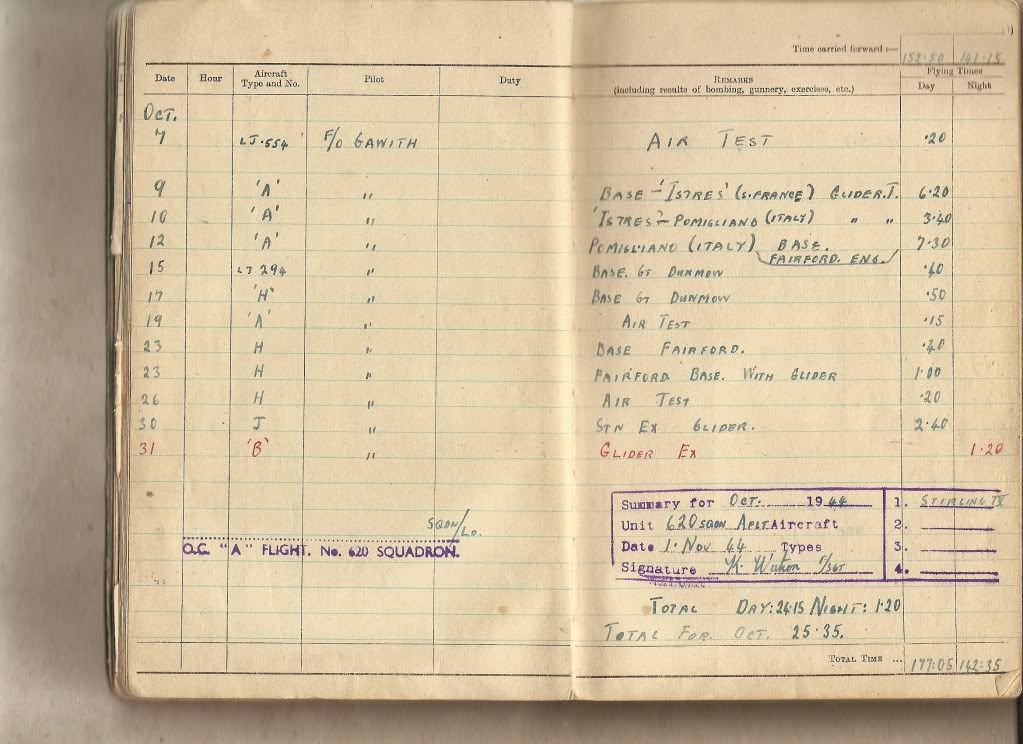 Time carried forward :— 152·50 141·15
Date Hour Aircraft Type and No. Pilot Duty REMARKS (including results of bombing, gunnery, exercises, etc.) Flying Times Day Night
OCT.
7 LJ·554 F/O GAWITH AIR TEST ·20
9 'A' " BASE - 'ISTRES' (S.FRANCE) GLIDER.T. 6·20
10 'A' " 'ISTRES' - POMIGLIANO (ITALY) " " 3·40
12 'A' " POMIGLIANO (ITALY) BASE. 7·30
FAIRFORD. ENG.
15 LJ 294 " BASE. GT DUNMOW ·40
17 'H' " BASE GT DUNMOW ·50
19 'A' " AIR TEST ·15
23 H " BASE FAIRFORD. ·40
23 H " FAIRFORD BASE. WITH GLIDER 1·00
26 H " AIR TEST ·20
30 J " STN EX GLIDER. 2·40
31 'B' " GLIDER EX 1·20
Summary for OCT. 1944 1. STIRLING IV
Unit 620 SQDN A FLT Aircraft 2.
Date 1·Nov 44 Types 3.
Signature F/SGT 4.
SQDN/LD.
O.C. "A" FLIGHT. No. 620 SQUADRON.
TOTAL DAY: 24·15 NIGHT: 1·20
TOTAL FOR OCT. 25·35.
TOTAL TIME ... 177:05 142:35